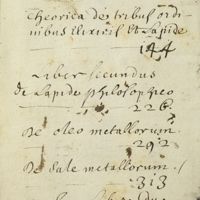 Theorica de tribus ordi-
nibus ilixiris Et Lapide
144
Liber secundus
de Lapide philosophico
226.
De oleo metallorum.
292
De sale metallorum.
313